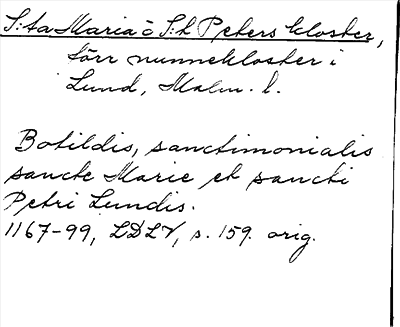 S:ta Maria o S:t Peters kloster,
förr nunnekloster i
Lund, Malm. l.
Botildis, sanctimonialis
sancte Marie et sancti
Petri Lundis.
1167-99, LDLV, s. 159. orig.